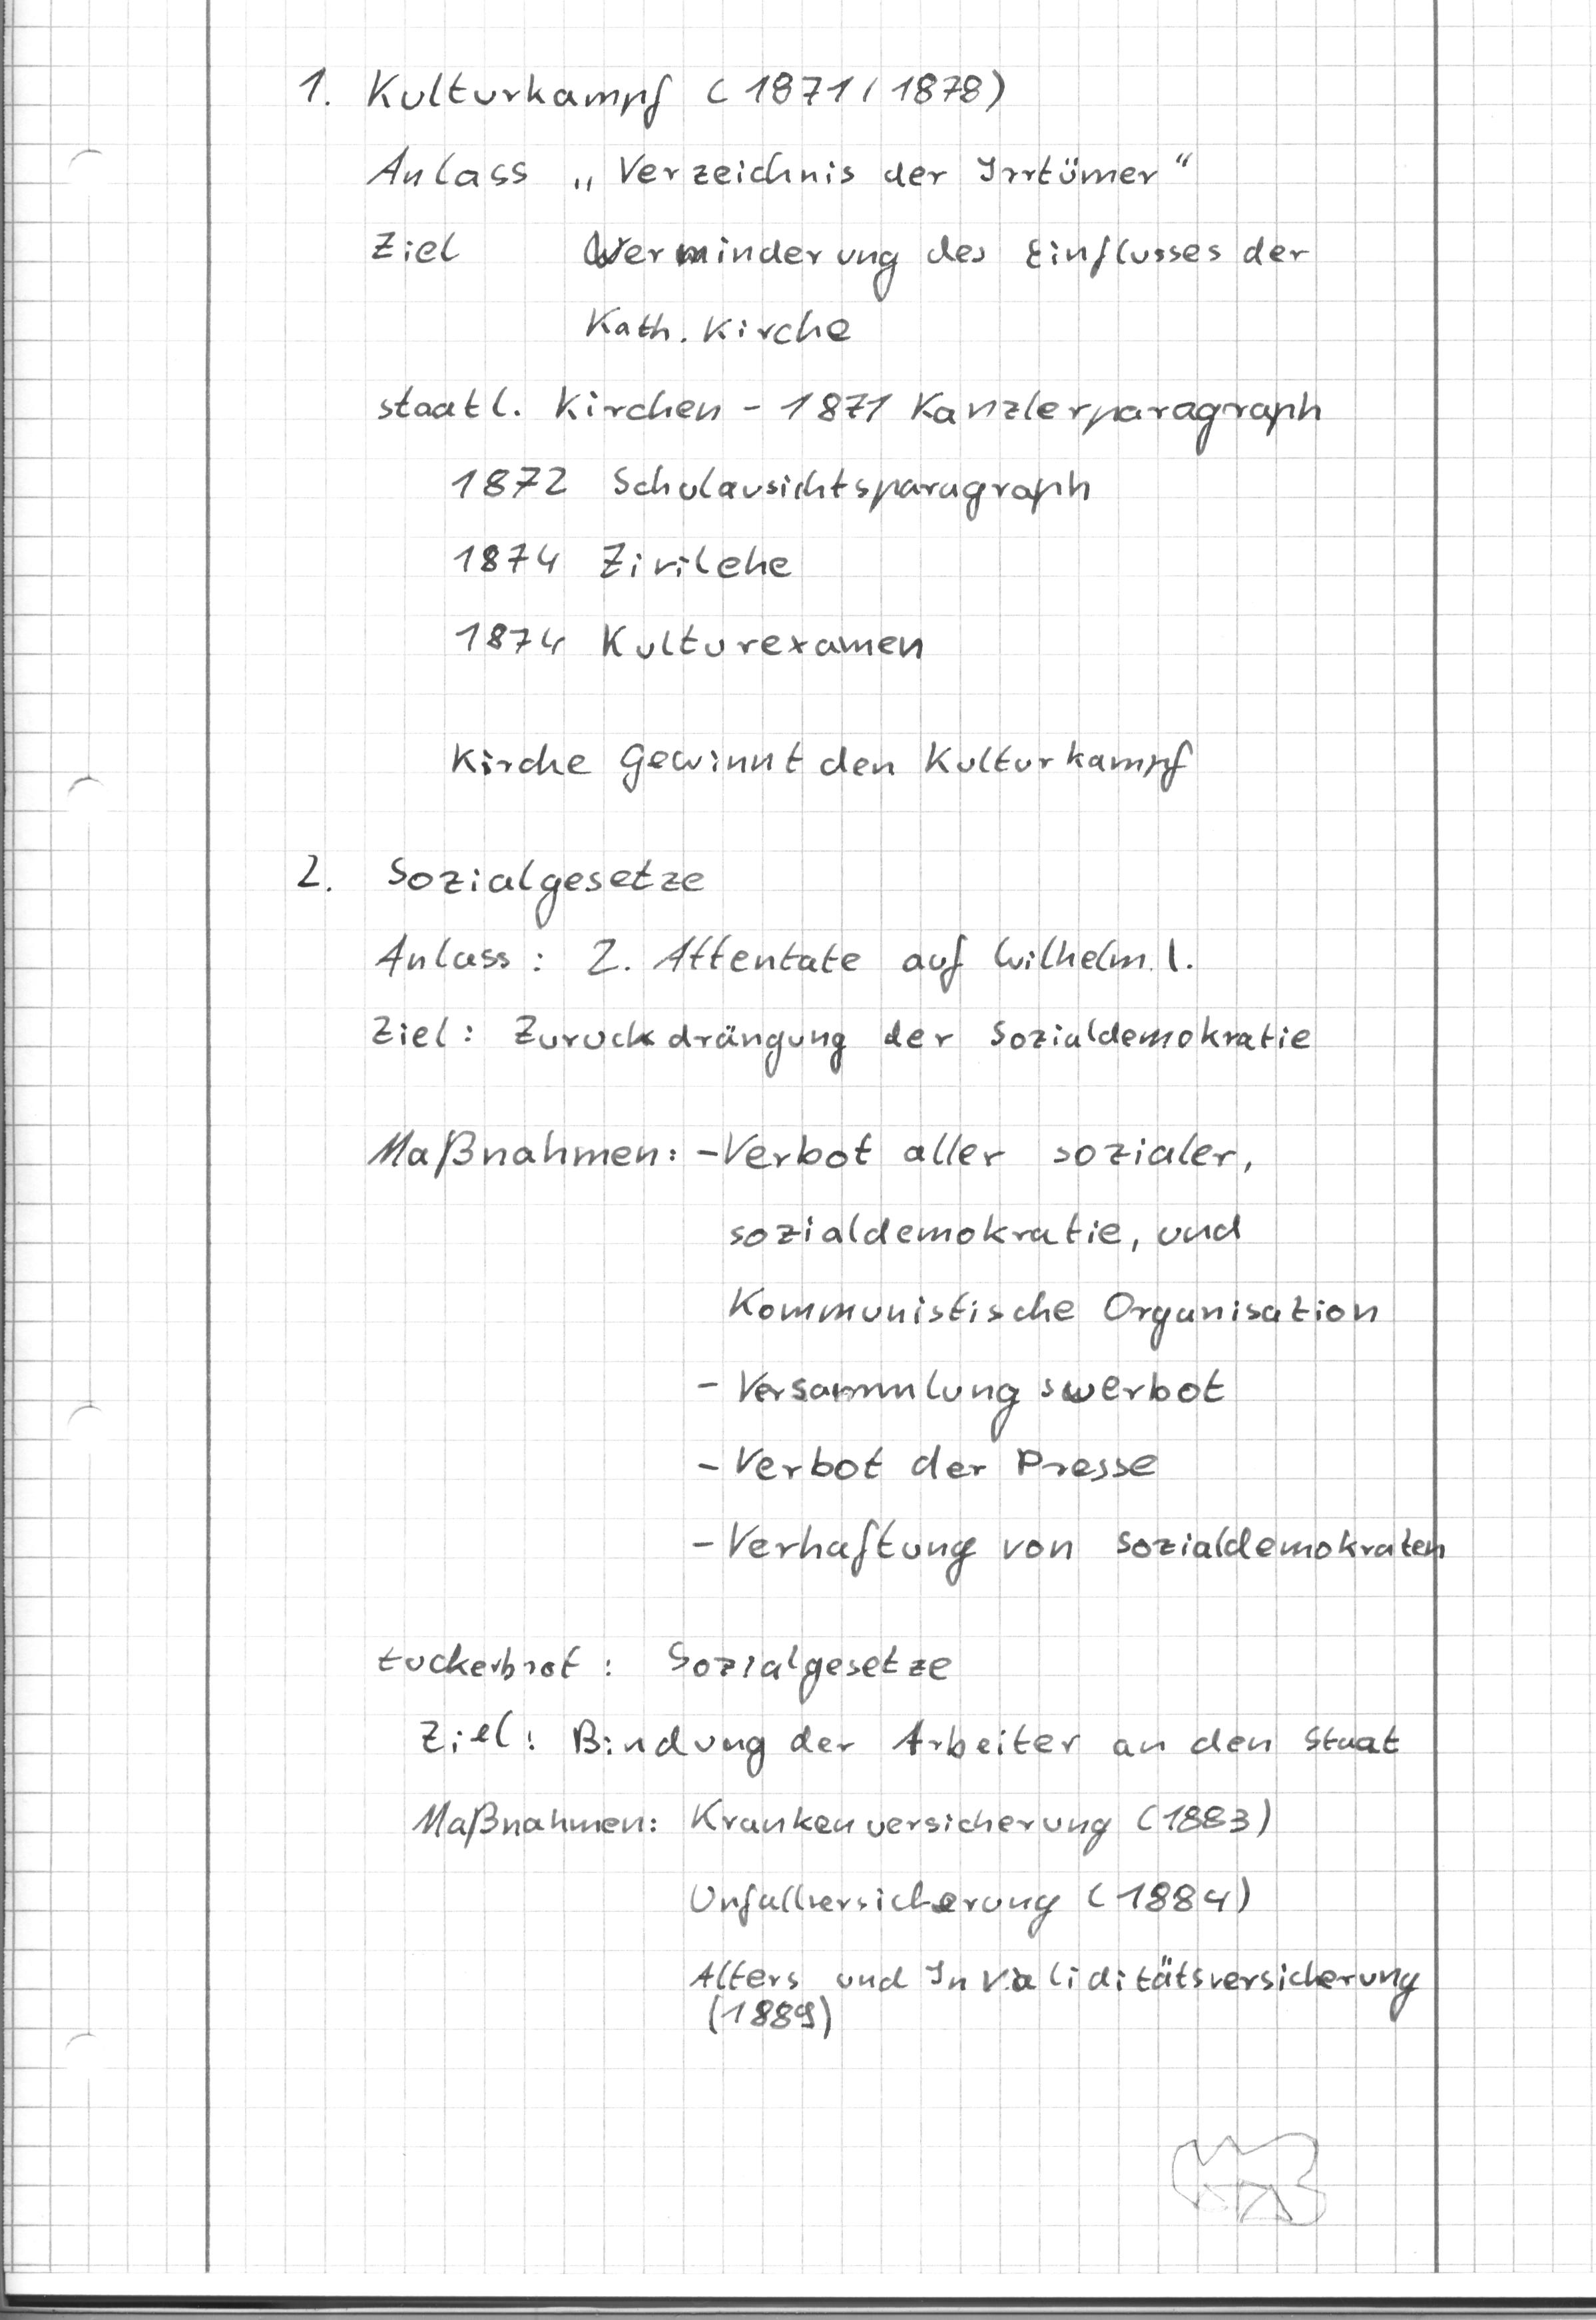 1. Kulturkampf (1871/1878)
Anlass „Verzeichnis der Irrtümer“
Ziel Verminderung des Einflusses der
Kath. Kirche
staatl. Kirchen - 1871 Kanzlerparagraph
1872 Schulausichtsparagraph
1874 Zivilehe
1874 Kulturexamen
Kirche Gewinnt den Kulturkampf
2. Sozialgesetze
Anlass: 2. Attentate auf Wilhelm. I.
Ziel: Zuruckdrängung der Sozialdemokratie
Maßnahmen: - Verbot aller sozialer,
sozialdemokratie, und
Kommunistische Organisation
- Versammlungsverbot
- Verbot der Presse
- Verhaftung von Sozialdemokraten
Zuckerbrot: Sozialgesetze
Ziel: Bindung der Arbeiter an den Staat
Maßnahmen: Krankenversicherung (1883)
Unfallversicherung (1884)
Alters und Invaliditätsversicherung
(1889)